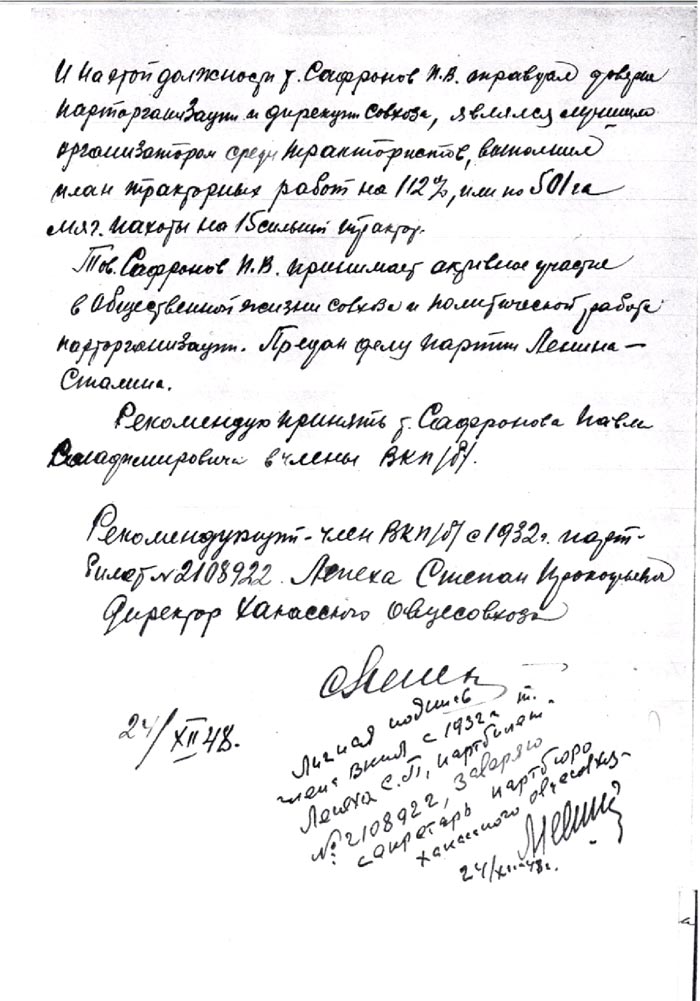 И на этой должности т. Сафронов П.В. оправдал доверие
парторганизации и дирекции совхоза, являлся лучшим
организатором среди трактористов, выполнил
план тракторных работ на 112%, или по 501 га
мяг. пахоты на 15 сильный трактор.
Тов. Сафронов П.В. принимает активное участие
в общественной жизни совхоза и политической работе
парторганизации. Предан делу партии Ленина –
Сталина.
Рекомендую принять т. Сафронова Павла
Владимировича в члены ВКП/б/.
Рекомендующий - член ВКП/б/ с 1932 г. парт-
билет № 2108922 Лепеха Степан Прокопьевич
Директор Хакасского Овцесовхоза
24/XII 48.
Личная подпись
члена ВКП/б с 1932 г. т.
Лепеха С.П., партбилет
№ 2108922, заверяю
секретарь партбюро
хакасского овцесовхоз-
24/XII-48г.